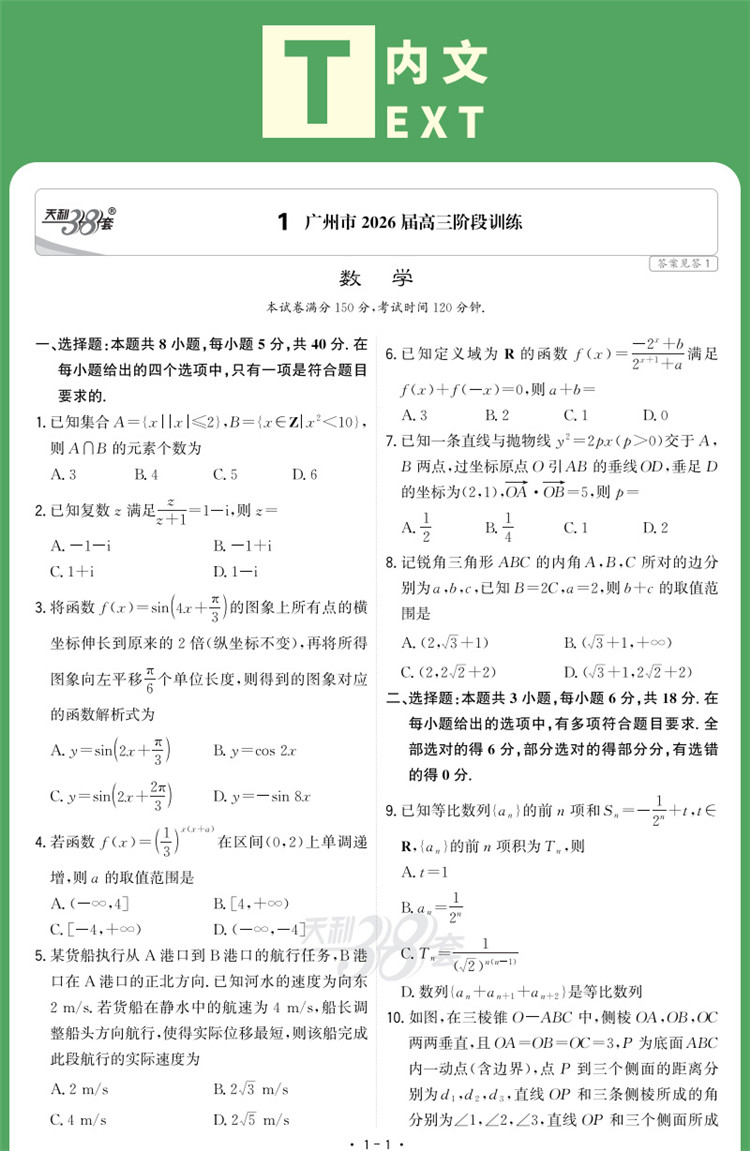 T 内文
EXT
天利38套®
1 广州市 2026 届高三阶段训练
答案见答 1
数 学
本试卷满分 150 分,考试时间 120 分钟.
一、选择题:本题共 8 小题,每小题 5 分,共 40 分. 在
每小题给出的四个选项中,只有一项是符合题目
要求的.
1. 已知集合 A={x||x|≤2},B={x∈Z|x²<10},
则 A∩B 的元素个数为
A. 3 B. 4 C. 5 D. 6
2. 已知复数 z 满足 z/(z+1)=1-i,则 z=
A. -1-i B. -1+i
C. 1+i D. 1-i
3. 将函数 f(x)=sin(4x+π/3)的图象上所有点的横
坐标伸长到原来的 2 倍(纵坐标不变),再将所得
图象向左平移 π/6 个单位长度,则得到的图象对应
的函数解析式为
A. y=sin(2x+π/3) B. y=cos 2x
C. y=sin(2x+2π/3) D. y=-sin 8x
4. 若函数 f(x)=(1/3)^{x(x+a)} 在区间(0,2)上单调递
增,则 a 的取值范围是
A. (-∞,4] B. [4,+∞)
C. [-4,+∞) D. (-∞,-4]
5. 某货船执行从 A 港口到 B 港口的航行任务,B 港
口在 A 港口的正北方向. 已知河水的速度为向东
2 m/s. 若货船在静水中的航速为 4 m/s,船长调
整船头方向航行,使得实际位移最短,则该船完成
此段航行的实际速度为
A. 2 m/s B. 2√3 m/s
C. 4 m/s D. 2√5 m/s
6. 已知定义域为 R 的函数 f(x)=(-2^x+b)/(2^{x+1}+a) 满足
f(x)+f(-x)=0,则 a+b=
A. 3 B. 2 C. 1 D. 0
7. 已知一条直线与抛物线 y²=2px(p>0)交于 A,
B 两点,过坐标原点 O 引 AB 的垂线 OD,垂足 D
的坐标为(2,1),OA→·OB→=5,则 p=
A. 1/2 B. 1/4 C. 1 D. 2
8. 记锐角三角形 ABC 的内角 A,B,C 所对的边分
别为 a,b,c,已知 B=2C,a=2,则 b+c 的取值范
围是
A. (2,√3+1) B. (√3+1,+∞)
C. (2,2√2+2) D. (√3+1,2√2+2)
二、选择题:本题共 3 小题,每小题 6 分,共 18 分. 在
每小题给出的选项中,有多项符合题目要求. 全
部选对的得 6 分,部分选对的得部分分,有选错
的得 0 分.
9. 已知等比数列{aₙ}的前 n 项和 Sₙ=-1/2ⁿ+t,t∈
R,{aₙ}的前 n 项积为 Tₙ,则
A. t=1
B. aₙ=1/2ⁿ
C. Tₙ=1/(√2)^{n(n-1)}
D. 数列{aₙ+aₙ₊₁+aₙ₊₂}是等比数列
10. 如图,在三棱锥 O-ABC 中,侧棱 OA,OB,OC
两两垂直,且 OA=OB=OC=3,P 为底面 ABC
内一动点(含边界),点 P 到三个侧面的距离分
别为 d₁,d₂,d₃,直线 OP 和三条侧棱所成的角
分别为∠1,∠2,∠3,直线 OP 和三个侧面所成
天利38套
· 1-1 ·